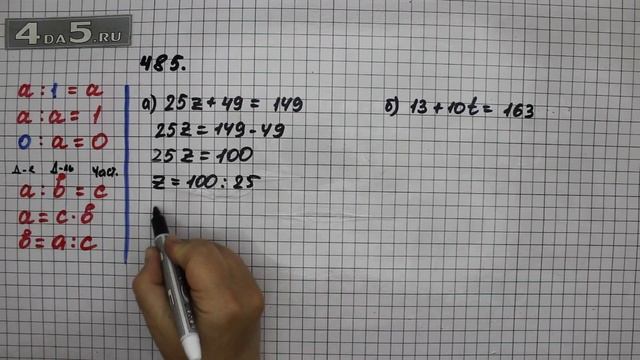 4ДА5.RU
485.
a : 1 = a
a : a = 1
0 : a = 0
Д-е Д-ль Част.
a : в = c
a = c · в
в = a : c
а) 25z + 49 = 149
25z = 149 - 49
25z = 100
z = 100 : 25
б) 13 + 10t = 163